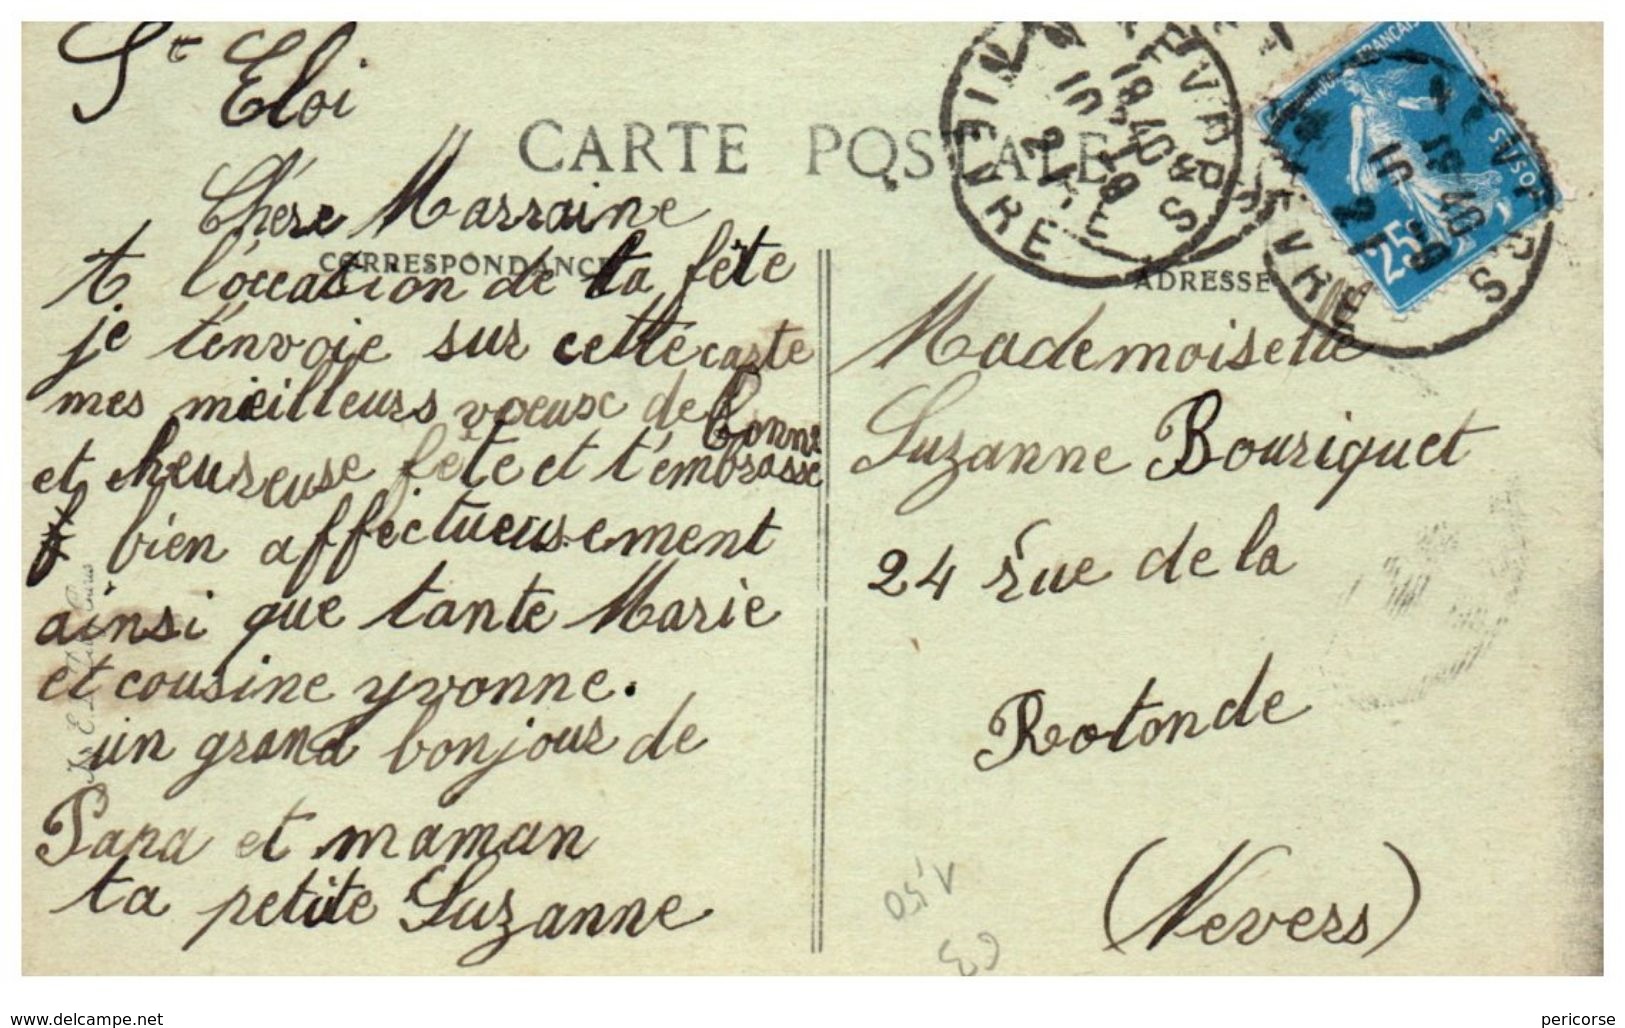 St Eloi
CARTE POSTALE
Chère Marraine
CORRESPONDANCE
A l'occasion de ta fête
je t'envoie sur cette carte
mes meilleurs voeux de bonne
et heureuse fête et t'embrasse
bien affectueusement
ainsi que tante Marie
et cousine yvonne.
un grand bonjour de
Papa et maman
ta petite Suzanne
ADRESSE
Mademoiselle
Suzanne Bouriquet
24 rue de la
Rotonde
(Nevers)
25c
1,50
www.delcampe.net
pericorse